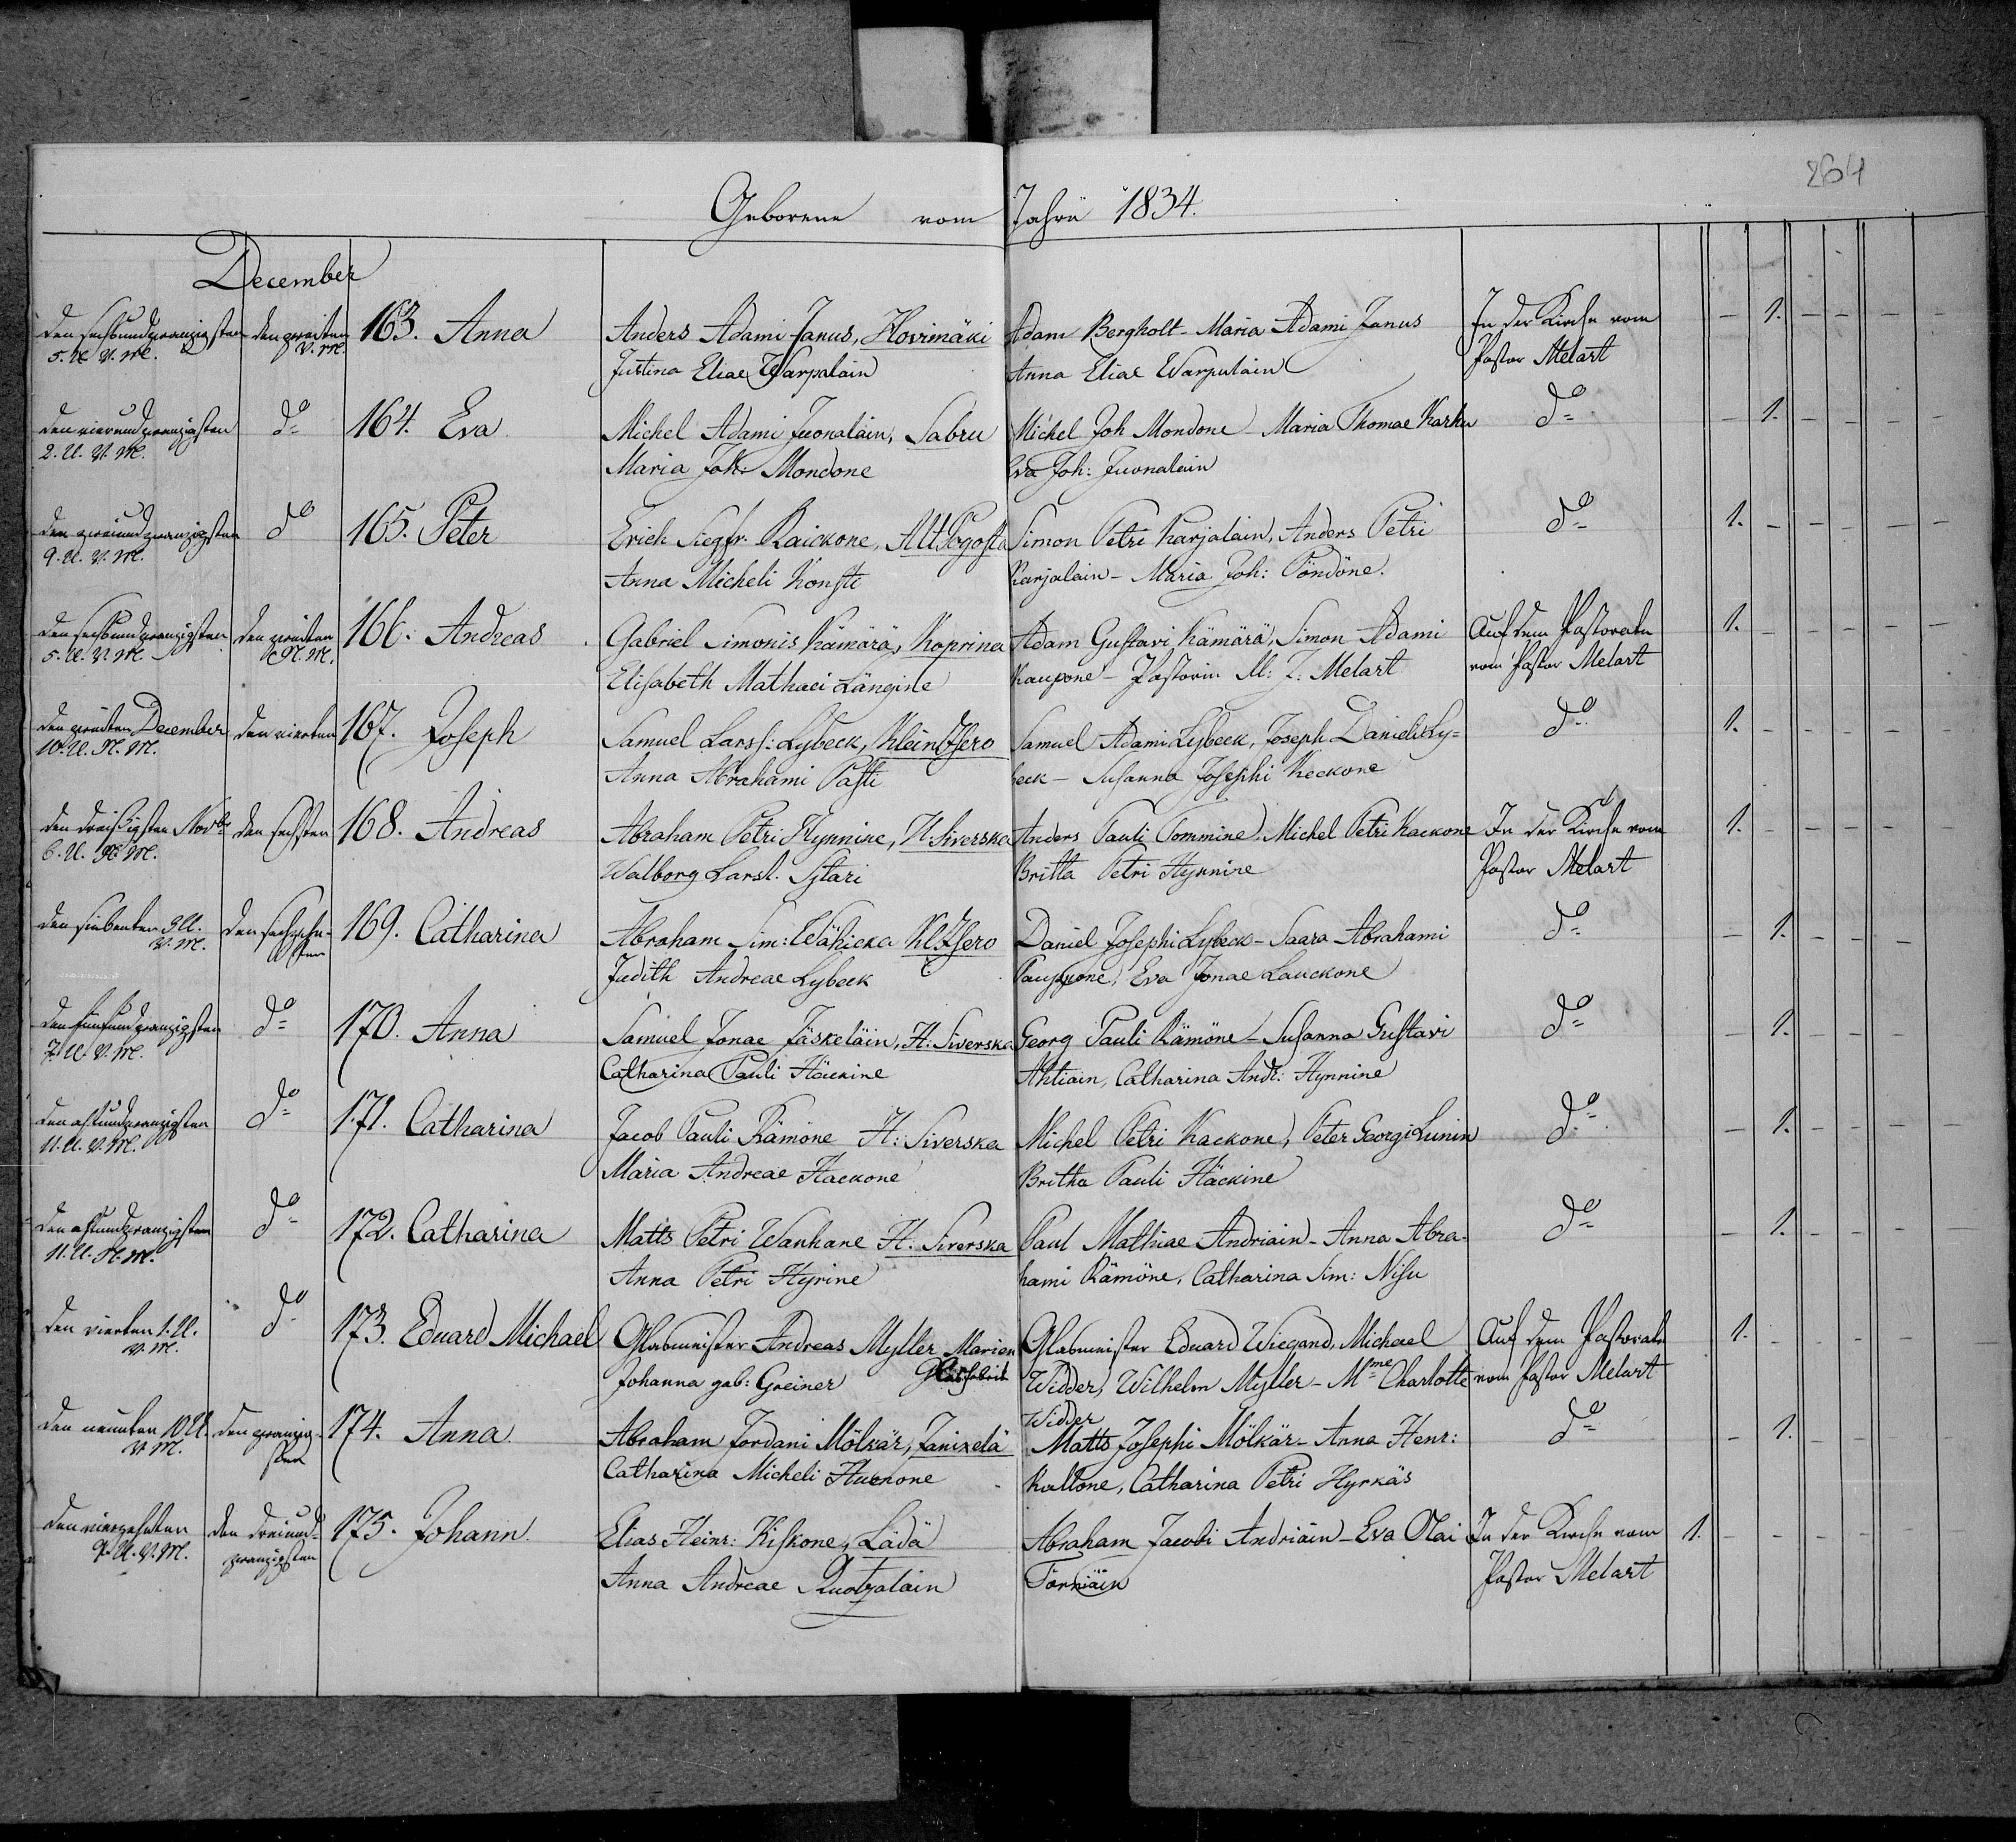 264
Geborene vom Jahre 1834.
December
den sechsundzwanzigsten den zweiten 163. Anna Anders Adami Janus, Hovimäki Adam Bergholt - Maria Adami Janus In der Kirche vom - 1. - - - -
5. U. V. M. V. M. Justina Eliae Warpalain Anna Eliae Warpulain Pastor Melart
den vierundzwanzigsten do 164. Eva Michel Adami Juonalain, Sabru Michel Joh Mondone - Maria Thomae Karhu do - 1. - - - -
2. U. V. M. Maria Joh: Mondone Eva Joh: Juonalain
den zweiundzwanzigsten do 165. Peter Erich Siegfr. Raickone, Alt Pogosta Simon Petri Karjalain, Anders Petri do 1. - - - - -
9. U. V. M. Anna Micheli Konsti Karjalain - Maria Joh: Pöndöne.
den sechsundzwanzigsten den zweiten 166. Andreas Gabriel Simonis Kämärä, Koprina Adam Gustavi Kämärä, Simon Adami Auf dem Pastorate 1. - - - - -
5. U. V. M. N. M. Elisabeth Mathaei Längine Kaupone - Pastorin M: J: Melart vom Pastor Melart
den zweiten December den vierten 167. Joseph Samuel Larss: Lybeck, Klein Isero Samuel Adami Lybeck, Joseph Danieli Ly= do 1. - - - - -
10. U. N. M. Anna Abrahami Pasti beck - Susanna Josephi Keckone
den dreißigsten Novbr den sechsten 168. Andreas Abraham Petri Hynnine, H. Siverska Anders Pauli Pommine, Michel Petri Kackone In der Kirche vom 1. - - - -
6. U. N. M. Walborg Larsl. Sytari Britta Petri Hynnine Pastor Melart
den siebenten 3 U. den sechzehn- 169. Catharina Abraham Sim: Wähicka Kl. Isero Daniel Josephi Lybeck - Saara Abrahami do - 1. - - -
V. M. ten Judith Andreae Lybeck Pauppone, Eva Jonae Lauckone
den fünfundzwanzigsten do 170. Anna Samuel Jonae Jäskeläin, H: Siverska Georg Pauli Rämöne - Susanna Gustavi do - 1. - - -
7. U. V. M. Catharina Pauli Häckine Ahtiain, Catharina Andr: Hynnine
den achtundzwanzigsten do 171. Catharina Jacob Pauli Rämöne H: Siverska Michel Petri Kackone, Peter Georgi Lunin do - 1. - - - -
11. U. V. M. Maria Andreae Hackone Britha Pauli Häckine
den achtundzwanzigsten do 172. Catharina Matts Petri Wanhane H: Siverska Paul Mathiae Andriain - Anna Abra- do - 1. - - - -
11. U. N. M. Anna Petri Hyrine hami Rämöne, Catharina Sim: Nisu
den vierten 1. U. do 173. Eduard Michael Glasmeister Andreas Myller Marien Glasmeister Eduard Wiegand, Michael Auf dem Pastorate 1. - - -
V. M. Johanna geb: Greiner Glasfabrik Widder, Wilhelm Myller - Mme Charlotte vom Pastor Melart
Widder
den neunten 10 U. den zwanzig- 174. Anna Abraham Jordani Mölkär, Janixelä Matts Josephi Mölkär - Anna Henr: do - 1. -
V. M. sten Catharina Micheli Huckone Kallone, Catharina Petri Hyrkäs
den vierzehnten den dreiund- 175. Johann Elias Heinr: Kiskone, Lädä Abraham Jacobi Andriäin - Eva Olai In der Kirche vom 1. - - - -
9. U. V. M. zwanzigsten Anna Andreae Ruotzalain Törniäin Pastor Melart